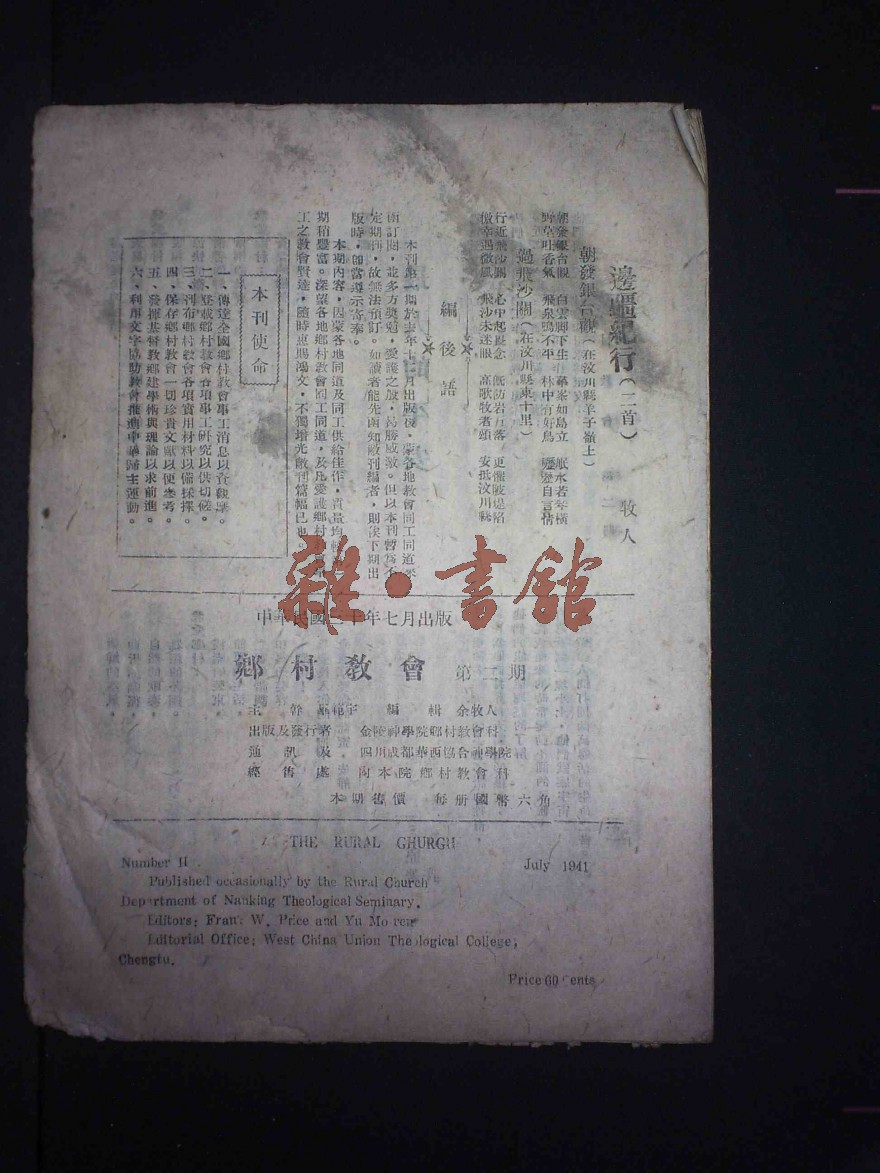 邊疆紀行（二首）
牧人
朝發銀台觀（在汶川縣羊子嶺上）
朝發銀台觀 白雲脚下生 羣峯如島立 岷水若琴橫
野草吐香氣 飛泉鳴不平 林中有好鳥 嚦嚦自言情
過飛沙關（在汶川縣東十里）
行近飛沙關 心中起 念 既防岩石落 更懼陂堤陷
儌幸遇微風 飛沙未迷眼 高歌牧者頌 安抵汶川縣
編後語
本刊第一期於去年十 月出版後，蒙各地教會同工同道來
函訂閱，並多方獎勉，愛護之般，曷勝感激。但以本刊暫爲不
定期刊，故無法預訂。如讀者能先函知敝刊編者，則俟下期出
版時，卽當遵示寄奉。
本期內容，因蒙各地同道及同工供給佳作，質量均較
期稍豐富。深望各地鄉村教會同工同道，及凡愛護鄉村
工之教會賢達，隨時惠賜鴻文，不獨增光敝刊篇幅已也。
本刊使命
一、傳達全國鄉村教會事工消息以資觀摩。
二、登載鄉村教會各項事工研究以供切磋。
三、刊布鄉村教會各項實用材料以備採擇。
四、保存鄉村教會一切珍貴文獻以便參考。
五、發揮基督教鄉建學術與理論以求前進。
六、利用文字協助教會推動中華歸主運動。
雜·書館
中華民國三十年七月出版
鄉村教會 第二期
主幹 畢範宇 編輯 余牧人
出版及發行者 金陵神學院鄉村教會科
通訊及 四川成都華西協合神學院
經售處 內本院鄉村教會科
本期售價每册國幣六角
THE RURAL GHURGH
Number II
July 1941
Published occasionally by the Rural Church
Department of Nanking Theological Seminary.
Editors: Frank W. Price and Yu Mo-ren
Editorial Office: West China Union Theological College,
Chengtu.
Price 60 Cents